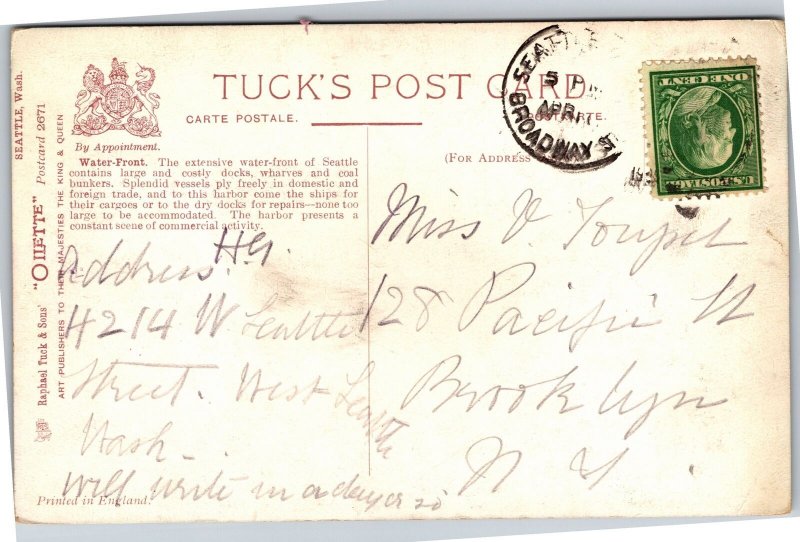 TUCK'S POST CARD.
CARTE POSTALE.
POSTKARTE.
(FOR ADDRESS
By Appointment.
Water-Front. The extensive water-front of Seattle
contains large and costly docks, wharves and coal
bunkers. Splendid vessels ply freely in domestic and
foreign trade, and to this harbor come the ships for
their cargoes or to the dry docks for repairs—none too
large to be accommodated. The harbor presents a
constant scene of commercial activity.
SEATTLE, Wash.
"OILETTE" Postcard 2671
Raphael Tuck & Sons'
ART PUBLISHERS TO THEIR MAJESTIES THE KING & QUEEN
Printed in England.
SEATTLE
5 P
APR 17
BROADWAY
U.S. POSTAGE
ONE CENT
Address. H9.
4214 W Seattle
Street. West Seattle
Wash-
will write in a day or so
Miss V.
128 Pacific St
Brooklyn
N Y.